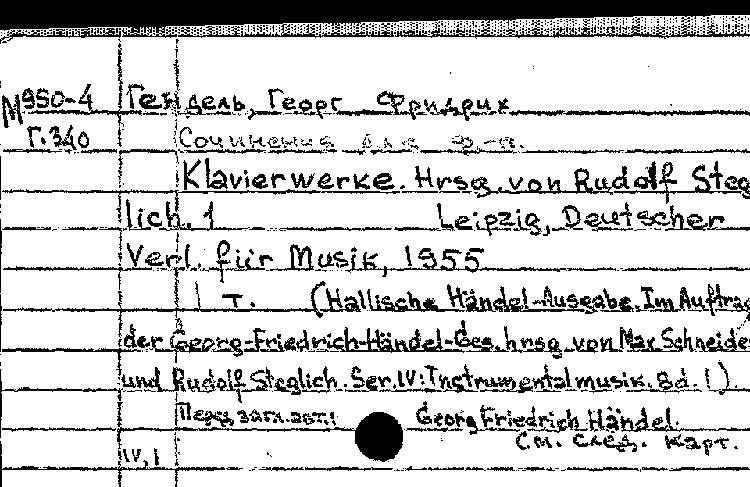 М950-4 Гендель, Георг Фридрих
Г.340 Сочинения для ф.-п.
Klavierwerke. Hrsg. von Rudolf Steg
lich. 1 Leipzig, Deutscher
Verl. für Musik, 1955
1 т. (Hallische Händel-Ausgabe. Im Auftrag
der Georg-Friedrich-Händel-Ges. hrsg. von Max Schneider
und Rudolf Steglich. Ser. IV: Instrumentalmusik. Bd. 1).
Перед загл. авт.: Georg Friedrich Händel.
См. след. карт.
IV, 1